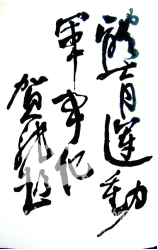 體育運動
軍事化
賀